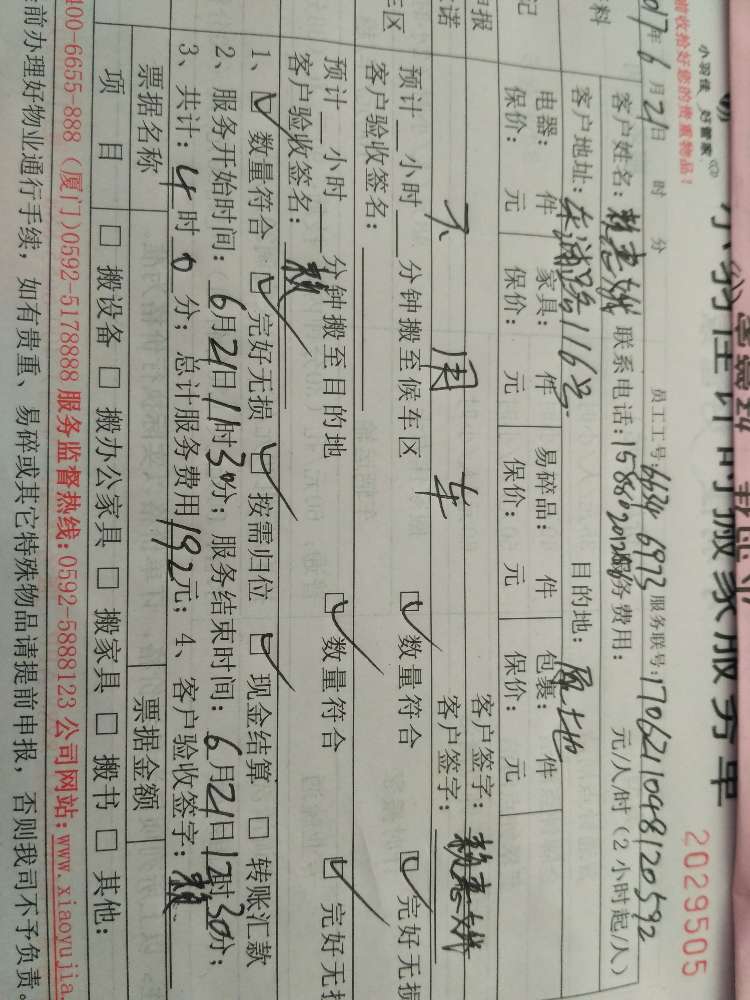 小羽佳 好管家
2029505
前收拾好您的贵重物品！
搬家服务单
员工工号: 6634 6973 服务联号: 1706211098120592
17年6月21日 时 分
客户姓名: 联系电话: 服务费用: 元/人/时(2小时起/人)
客户地址: 东浦路116号 目的地: 原地
电器: 件 家具: 件 易碎品: 件 包裹: 件
保价: 元 保价: 元 保价: 元 保价: 元
客户签字:
不用车 客户签字:
预计 小时 分钟搬至候车区 ☑ 数量符合 ☑ 完好无损
客户验收签名:
预计 小时 分钟搬至目的地 ☑ 数量符合 ☑ 完好无损
客户验收签名: 赖
1、☑ 数量符合 ☑ 完好无损 ☑ 按需归位 ☑ 现金结算 □ 转账汇款
2、服务开始时间: 6月21日11时30分; 服务结束时间: 6月21日12时30分;
3、共计: 4时0分; 总计服务费用192元; 4、客户验收签字: 赖
票据名称 票据金额
项目 □ 搬设备 □ 搬办公家具 □ 搬家具 □ 搬书 □ 其他:
400-6655-888 (厦门)0592-5178888 服务监督热线:0592-5888123 公司网站:www.xiaoyujia.
前办理好物业通行手续，如有贵重、易碎或其它特殊物品请提前申报，否则我司不予负责。